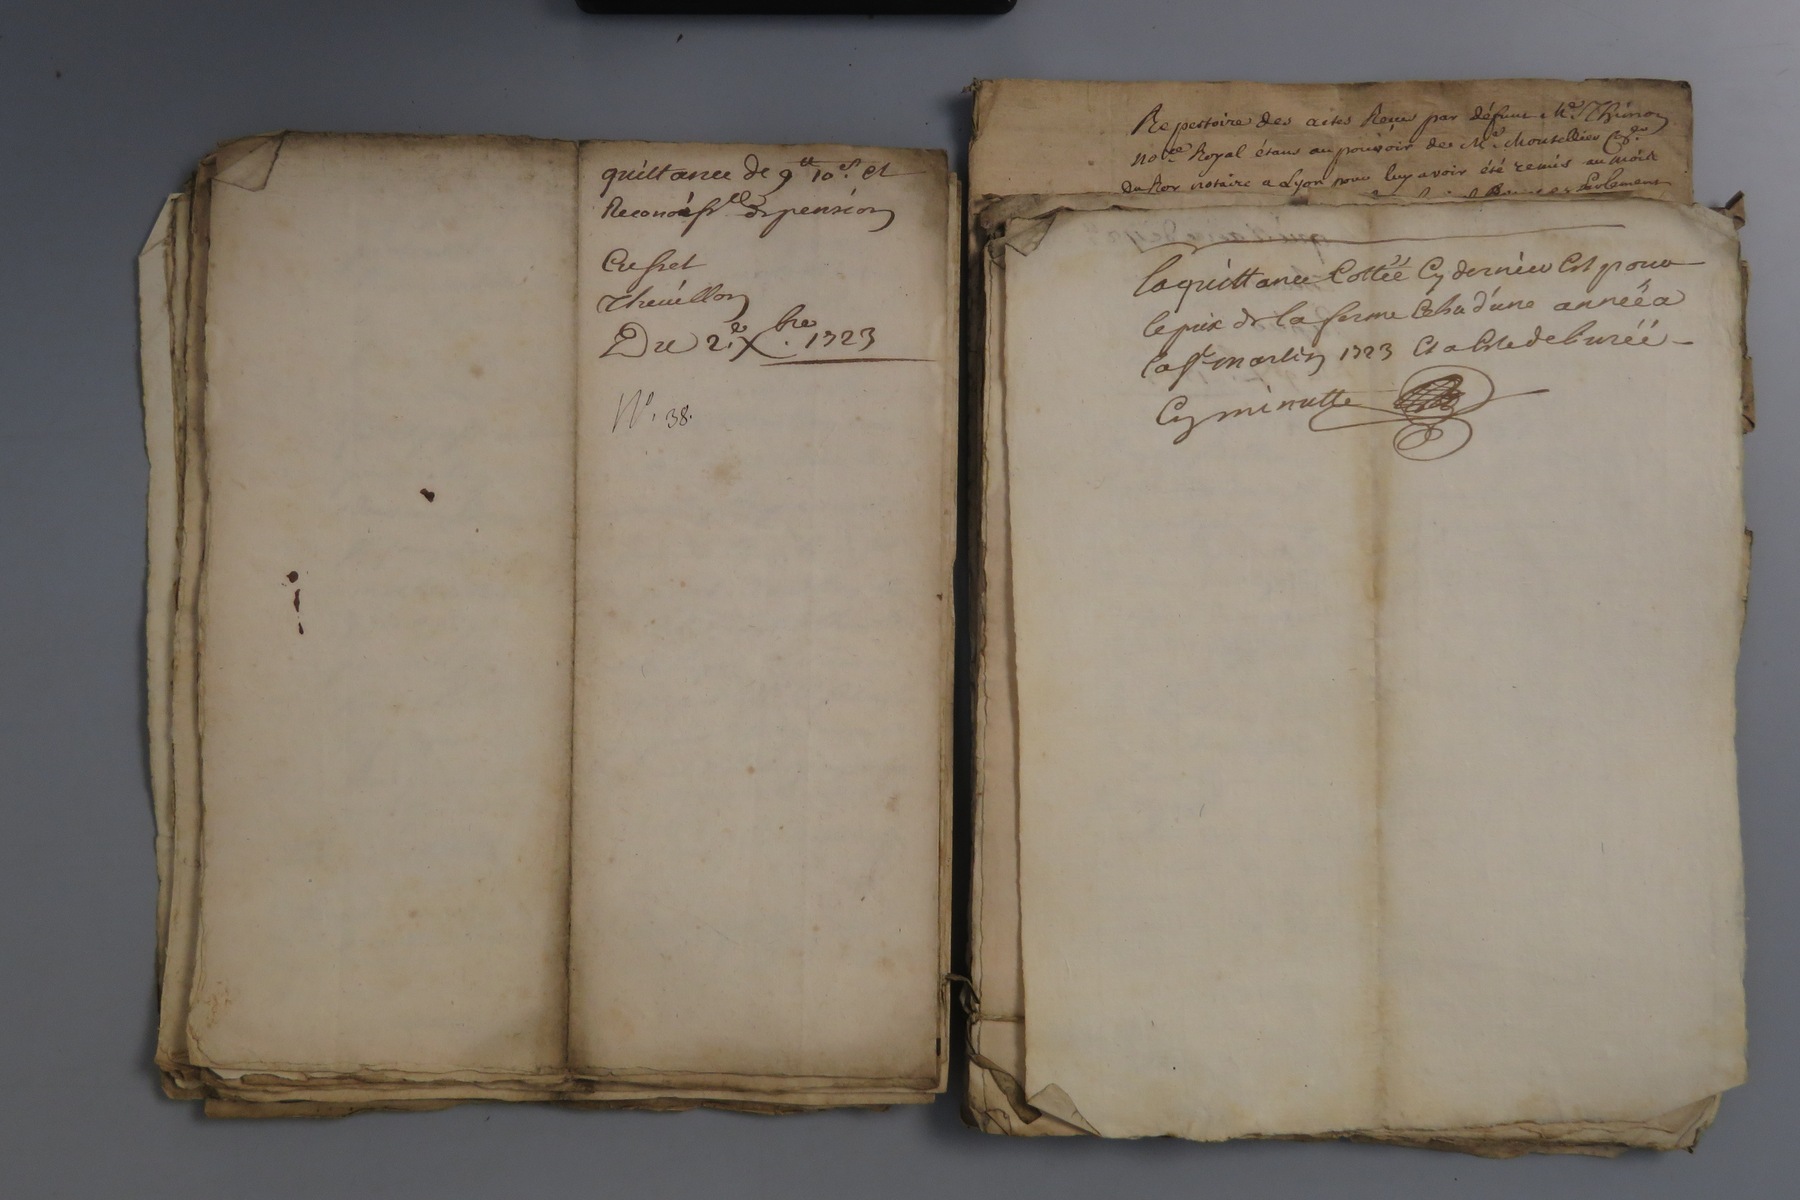 quittance de 9tt 10s. et
Reconoiss.ce de pension
Cusset
Thevillon
Du 2.e Xbre. 1723
N°. 38.
Repertoire des actes Receus par défunt Me. Thiénon
no.re Royal étans au pouvoir de Me. Moutellier
Du Roy notaire a Lyon pour luy avoir été remis au mois
Parlement
la quittance Cottéé Cy dernier Est pour
le prix de la ferme Echu d'une annéé a
la St. martin 1723 Et a Esté delivréé
Cy minutte